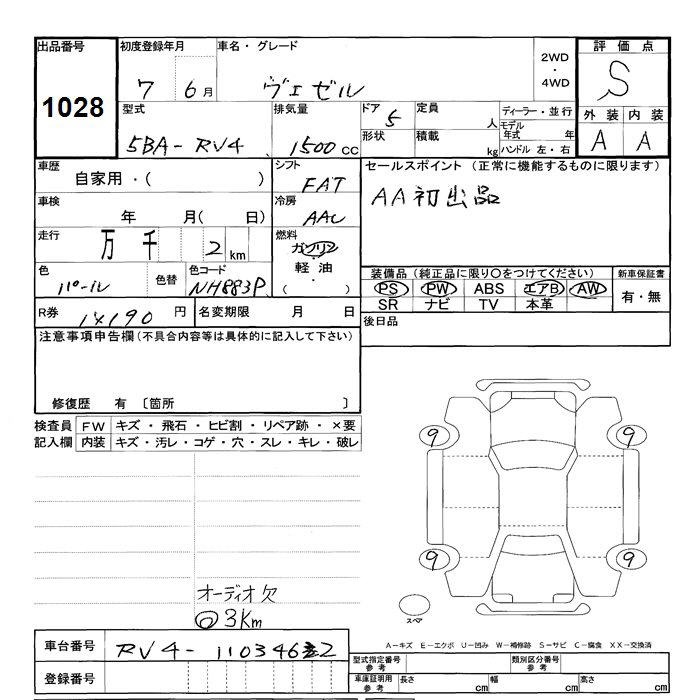 出品番号 初度登録年月 車名・グレード 2WD・4WD 評価点
1028 7 6月 ヴェゼル S
型式 排気量 ドア 定員 ディーラー・並行 外装 内装
5BA-RV4 1500cc 5 人 モデル年式 年 A A
形状 積載 kg ハンドル 左・右
車歴 シフト セールスポイント(正常に機能するものに限ります)
自家用・( ) FAT AA初出品
車検 冷房
年 月( 日) AAC
走行 燃料
万 千 2 km ガソリン
軽油・( )
色 色替 色コード 装備品(純正品に限り〇をつけてください) 新車保証書
パール NH883P PS PW ABS エアB AW 有・無
SR ナビ TV 本革
R券 14190円 名変期限 月 日 後日品
注意事項申告欄(不具合内容等は具体的に記入して下さい)
修復歴 有 〔箇所 〕
検査員 FW キズ・飛石・ヒビ割・リペア跡・×要
記入欄 内装 キズ・汚レ・コゲ・穴・スレ・キレ・破レ
9 9
9 9
オーディオ欠
◎3Km
スペア
A-キズ E-エクボ U-凹み W-補修跡 S-サビ C-腐食 XX-交換済
車台番号 型式指定番号 参考 類別区分番号 参考
登録番号 車庫証明用 参考 長さ cm 幅 cm 高さ cm